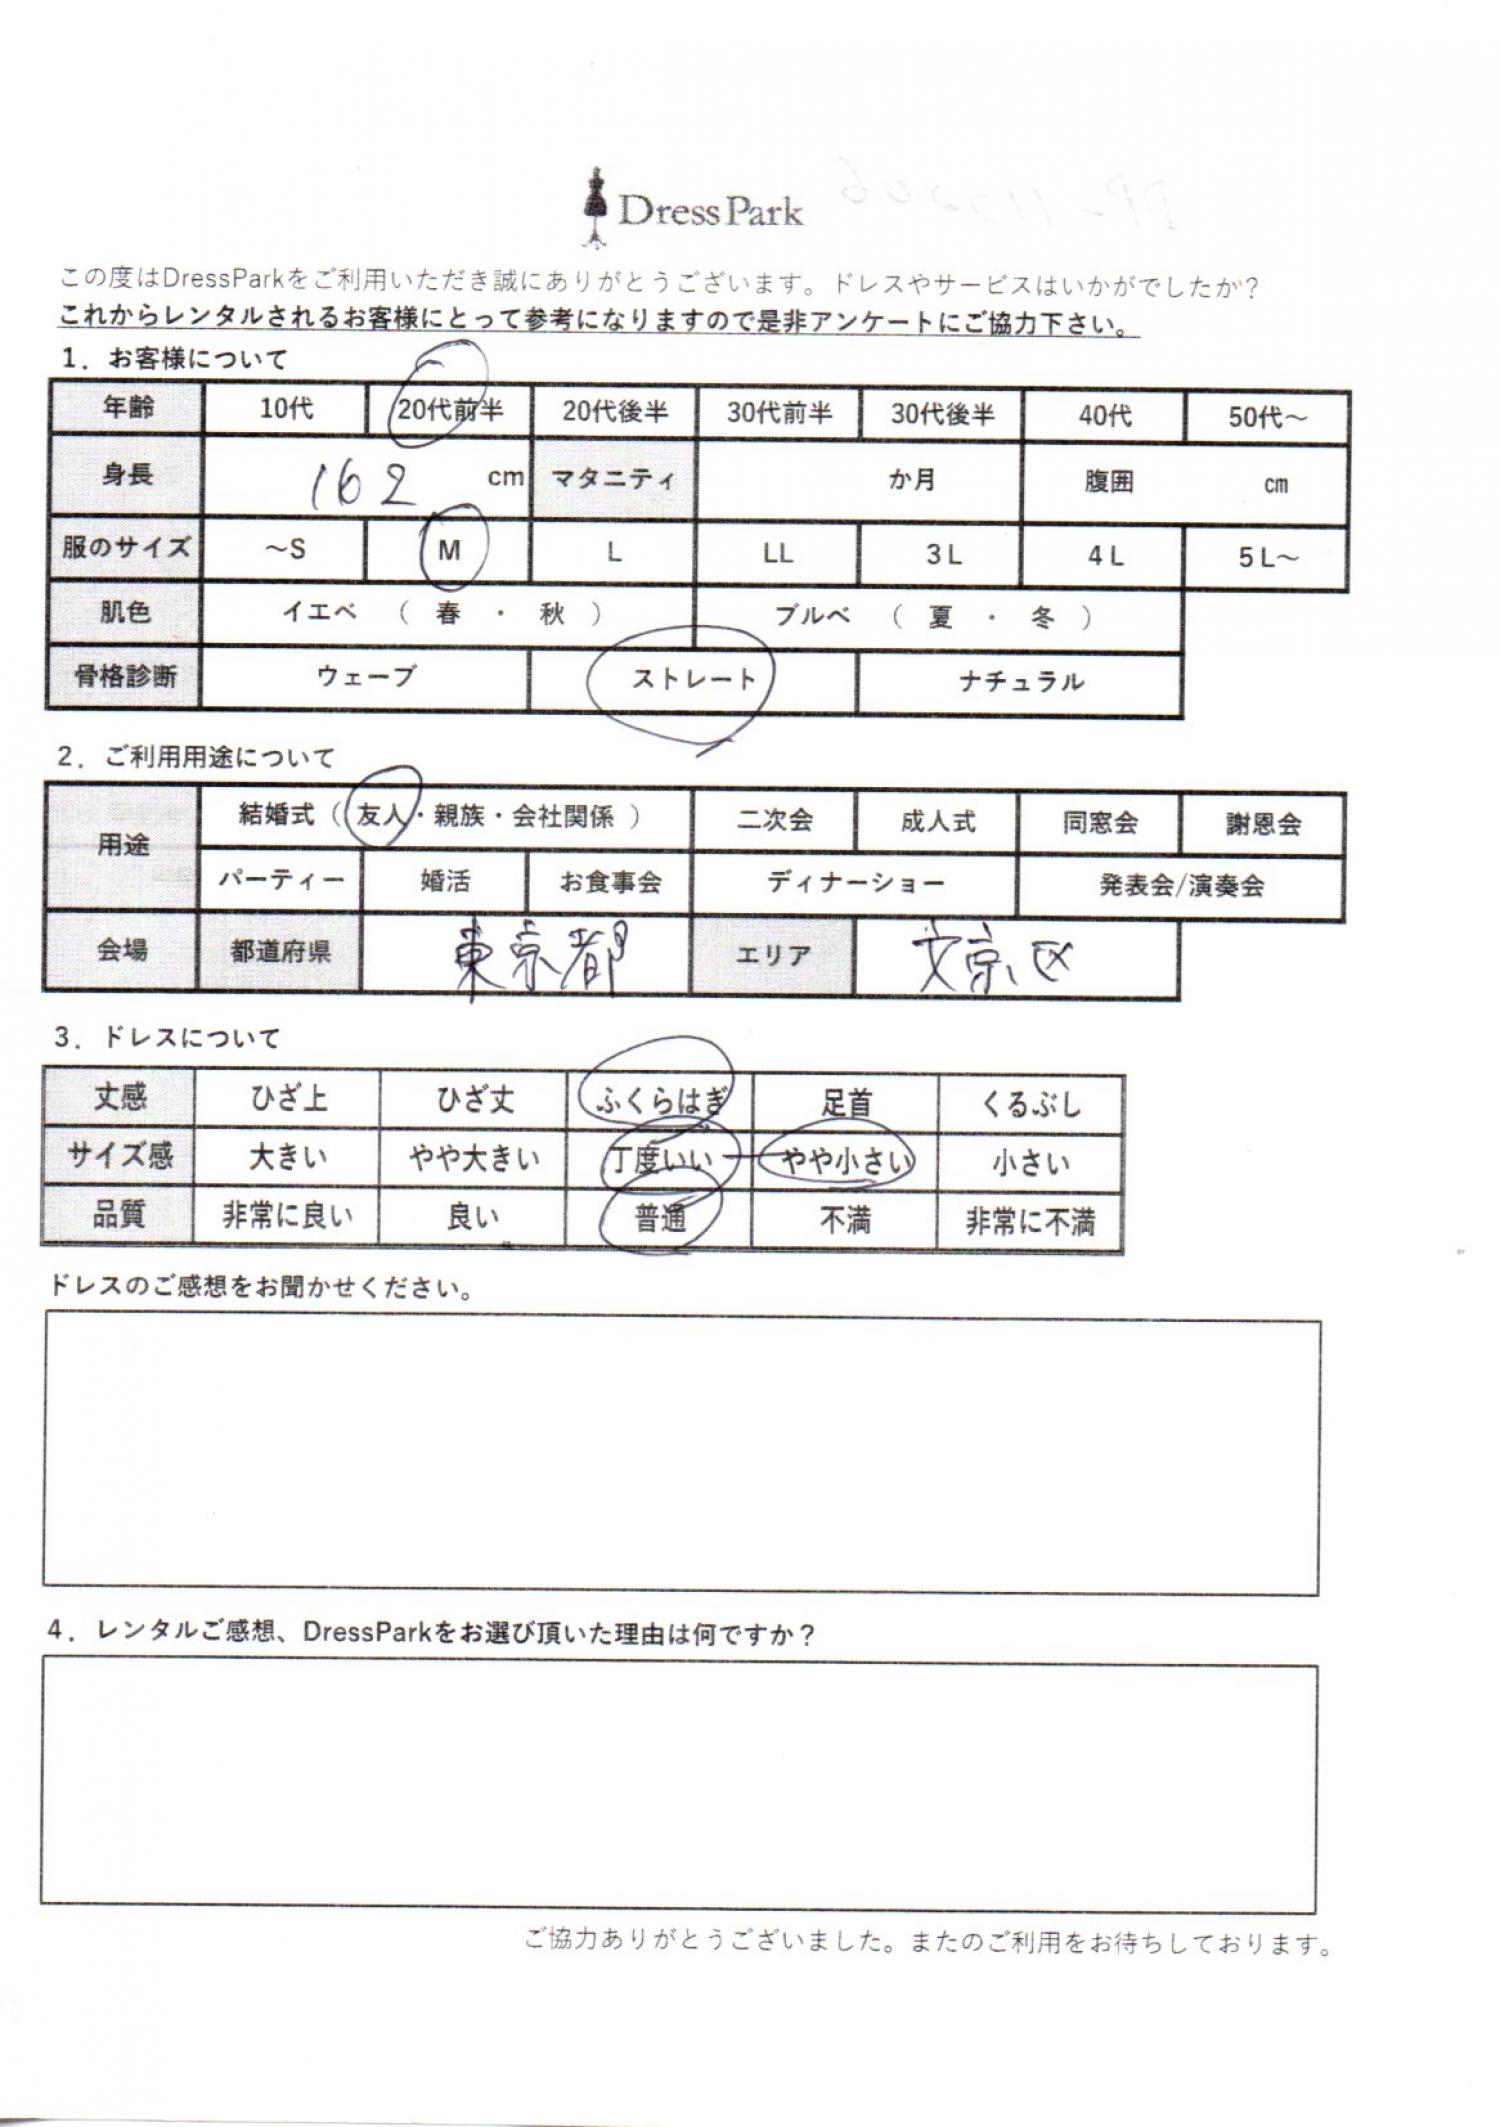 DressPark
この度はDressParkをご利用いただき誠にありがとうございます。ドレスやサービスはいかがでしたか？
これからレンタルされるお客様にとって参考になりますので是非アンケートにご協力下さい。
1．お客様について
年齢 10代 20代前半 20代後半 30代前半 30代後半 40代 50代～
身長 162 cm マタニティ か月 腹囲 cm
服のサイズ ～S M L LL 3L 4L 5L～
肌色 イエベ （ 春 ・ 秋 ） ブルベ （ 夏 ・ 冬 ）
骨格診断 ウェーブ ストレート ナチュラル
2．ご利用用途について
用途 結婚式（ 友人・親族・会社関係 ） 二次会 成人式 同窓会 謝恩会
パーティー 婚活 お食事会 ディナーショー 発表会/演奏会
会場 都道府県 東京都 エリア 文京区
3．ドレスについて
丈感 ひざ上 ひざ丈 ふくらはぎ 足首 くるぶし
サイズ感 大きい やや大きい 丁度いい やや小さい 小さい
品質 非常に良い 良い 普通 不満 非常に不満
ドレスのご感想をお聞かせください。
4．レンタルご感想、DressParkをお選び頂いた理由は何ですか？
ご協力ありがとうございました。またのご利用をお待ちしております。